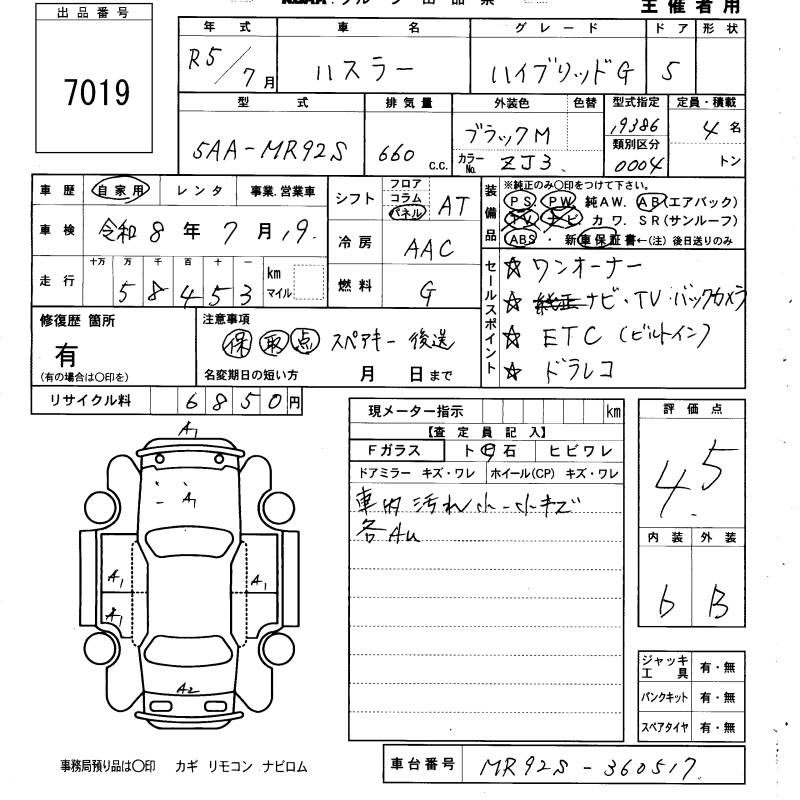 出品番号
7019
主催者用
年式 車名 グレード ドア 形状
R5/7月 ハスラー ハイブリッドG 5
型式 排気量 外装色 色替 型式指定 定員・積載
5AA-MR92S 660 c.c. ブラックM 19386 4名
カラーNo. ZJ3 類別区分 0004 トン
車歴 自家用 レンタ 事業.営業車
シフト フロア コラム パネル AT
装備品 ※純正のみ〇印をつけて下さい。
PS. PW 純AW. AB(エアバック)
TV ナビ カワ. SR(サンルーフ)
ABS ・ 新車保証書←(注) 後日送りのみ
車検 令和8年7月19
冷房 AAC
走行 十万 万 千 百 十 一 km マイル
58453
燃料 G
セールスポイント
☆ ワンオーナー
☆ 純正ナビ・TV・バックカメラ
☆ ETC (ビルトイン)
☆ ドラレコ
修復歴 箇所
有
(有の場合は〇印を)
注意事項
保 取 点 スペアキー 後送
名変期日の短い方 月 日まで
リサイクル料 6850円
現メーター指示 km
【査定員記入】
Fガラス ト 石 ヒビワレ
ドアミラー キズ・ワレ ホイール(CP) キズ・ワレ
車内汚れ小-小キズ
各AU
評価点
4.5
内装 外装
b B
A1
A1
A1
A1
A1
A2
ジャッキ工具 有・無
パンクキット 有・無
スペアタイヤ 有・無
事務局預り品は〇印 カギ リモコン ナビロム
車台番号 MR92S-360517